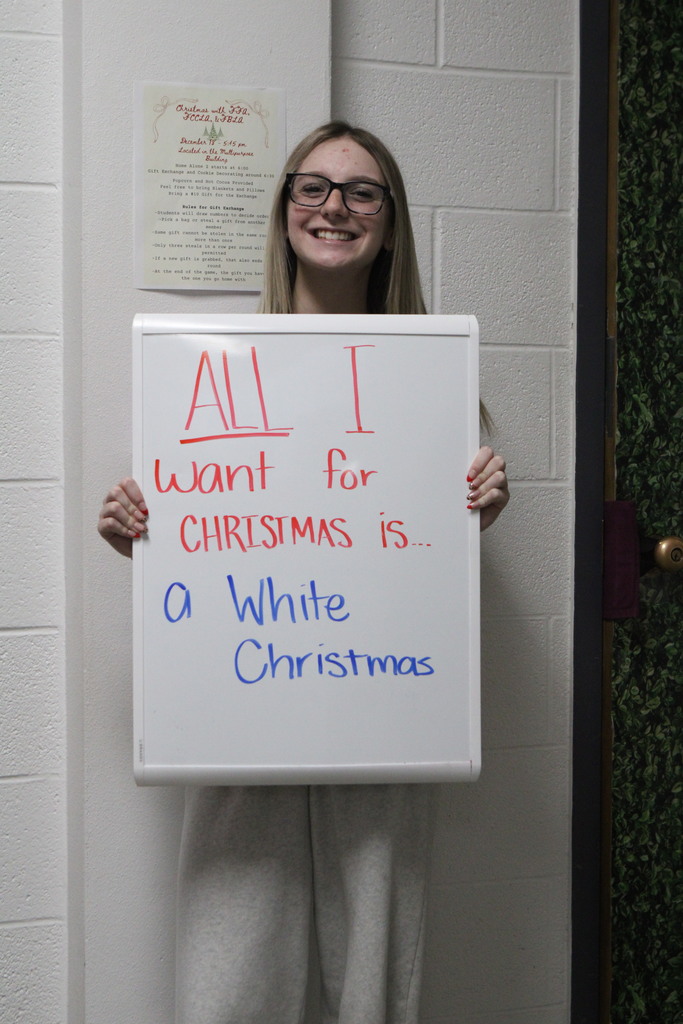 Christmas with FFA,
FCCLA, & FBLA
December 18 - 5:45 pm
Located in the Multipurpose
Building
Home Alone 2 starts at 6:00
Gift Exchange and Cookie Decorating around 6:45
Popcorn and Hot Cocoa Provided
Feel free to bring Blankets and Pillows
Bring a $10 Gift for the Exchange
Rules for Gift Exchange
-Students will draw numbers to decide order
-Pick a bag or steal a gift from another
member
-Same gift cannot be stolen in the same round
more than once
-Only three steals in a row per round will
permitted
-If a new gift is grabbed, that also ends
round
-At the end of the game, the gift you have
the one you go home with
ALL I
want for
CHRISTMAS is...
a White
Christmas